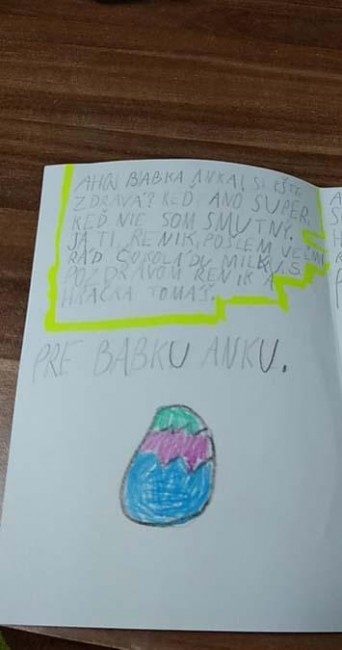 AHOJ BABKA ANKA! SI EŠTE
ZDRAVÁ? KEĎ ANO SUPER,
KEĎ NIE SOM SMUTNÝ.
JA TI, RENIK, POŠLEM VEĽMI
RÁD ČOKOLÁDU MILKU. S
POZDRAVOM RENIK A
HRAČKA TOMÁŠ.
PRE BABKU ANKU.